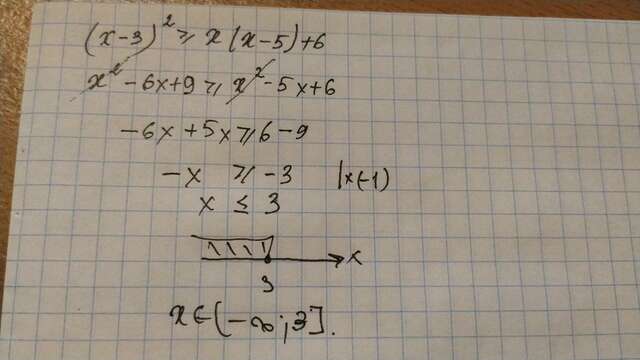 (x-3)² ⩾ x(x-5)+6
x² -6x+9 ⩾ x² -5x+6
-6x+5x ⩾ 6-9
-x ⩾ -3 |x(-1)
x ≤ 3
x
3
x∈(-∞;3].